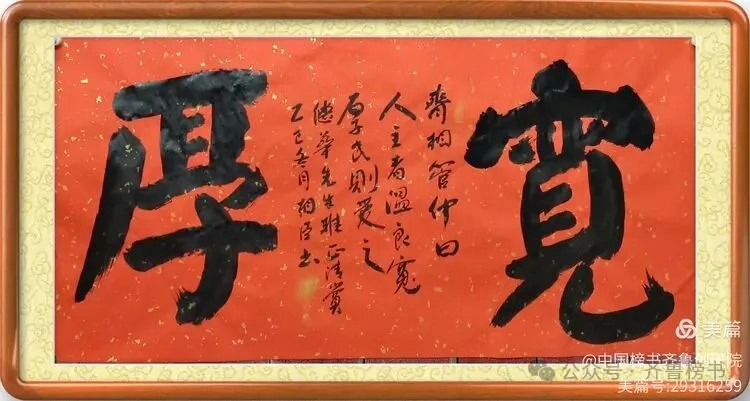 寬
齊相管仲曰
人主者溫良寬
厚民則愛之
德華先生雅正清賞
乙巳冬月相臣书
厚
美篇
@中国榜书齐鲁创研院
公众号·齐鲁榜书
美篇号:29316259